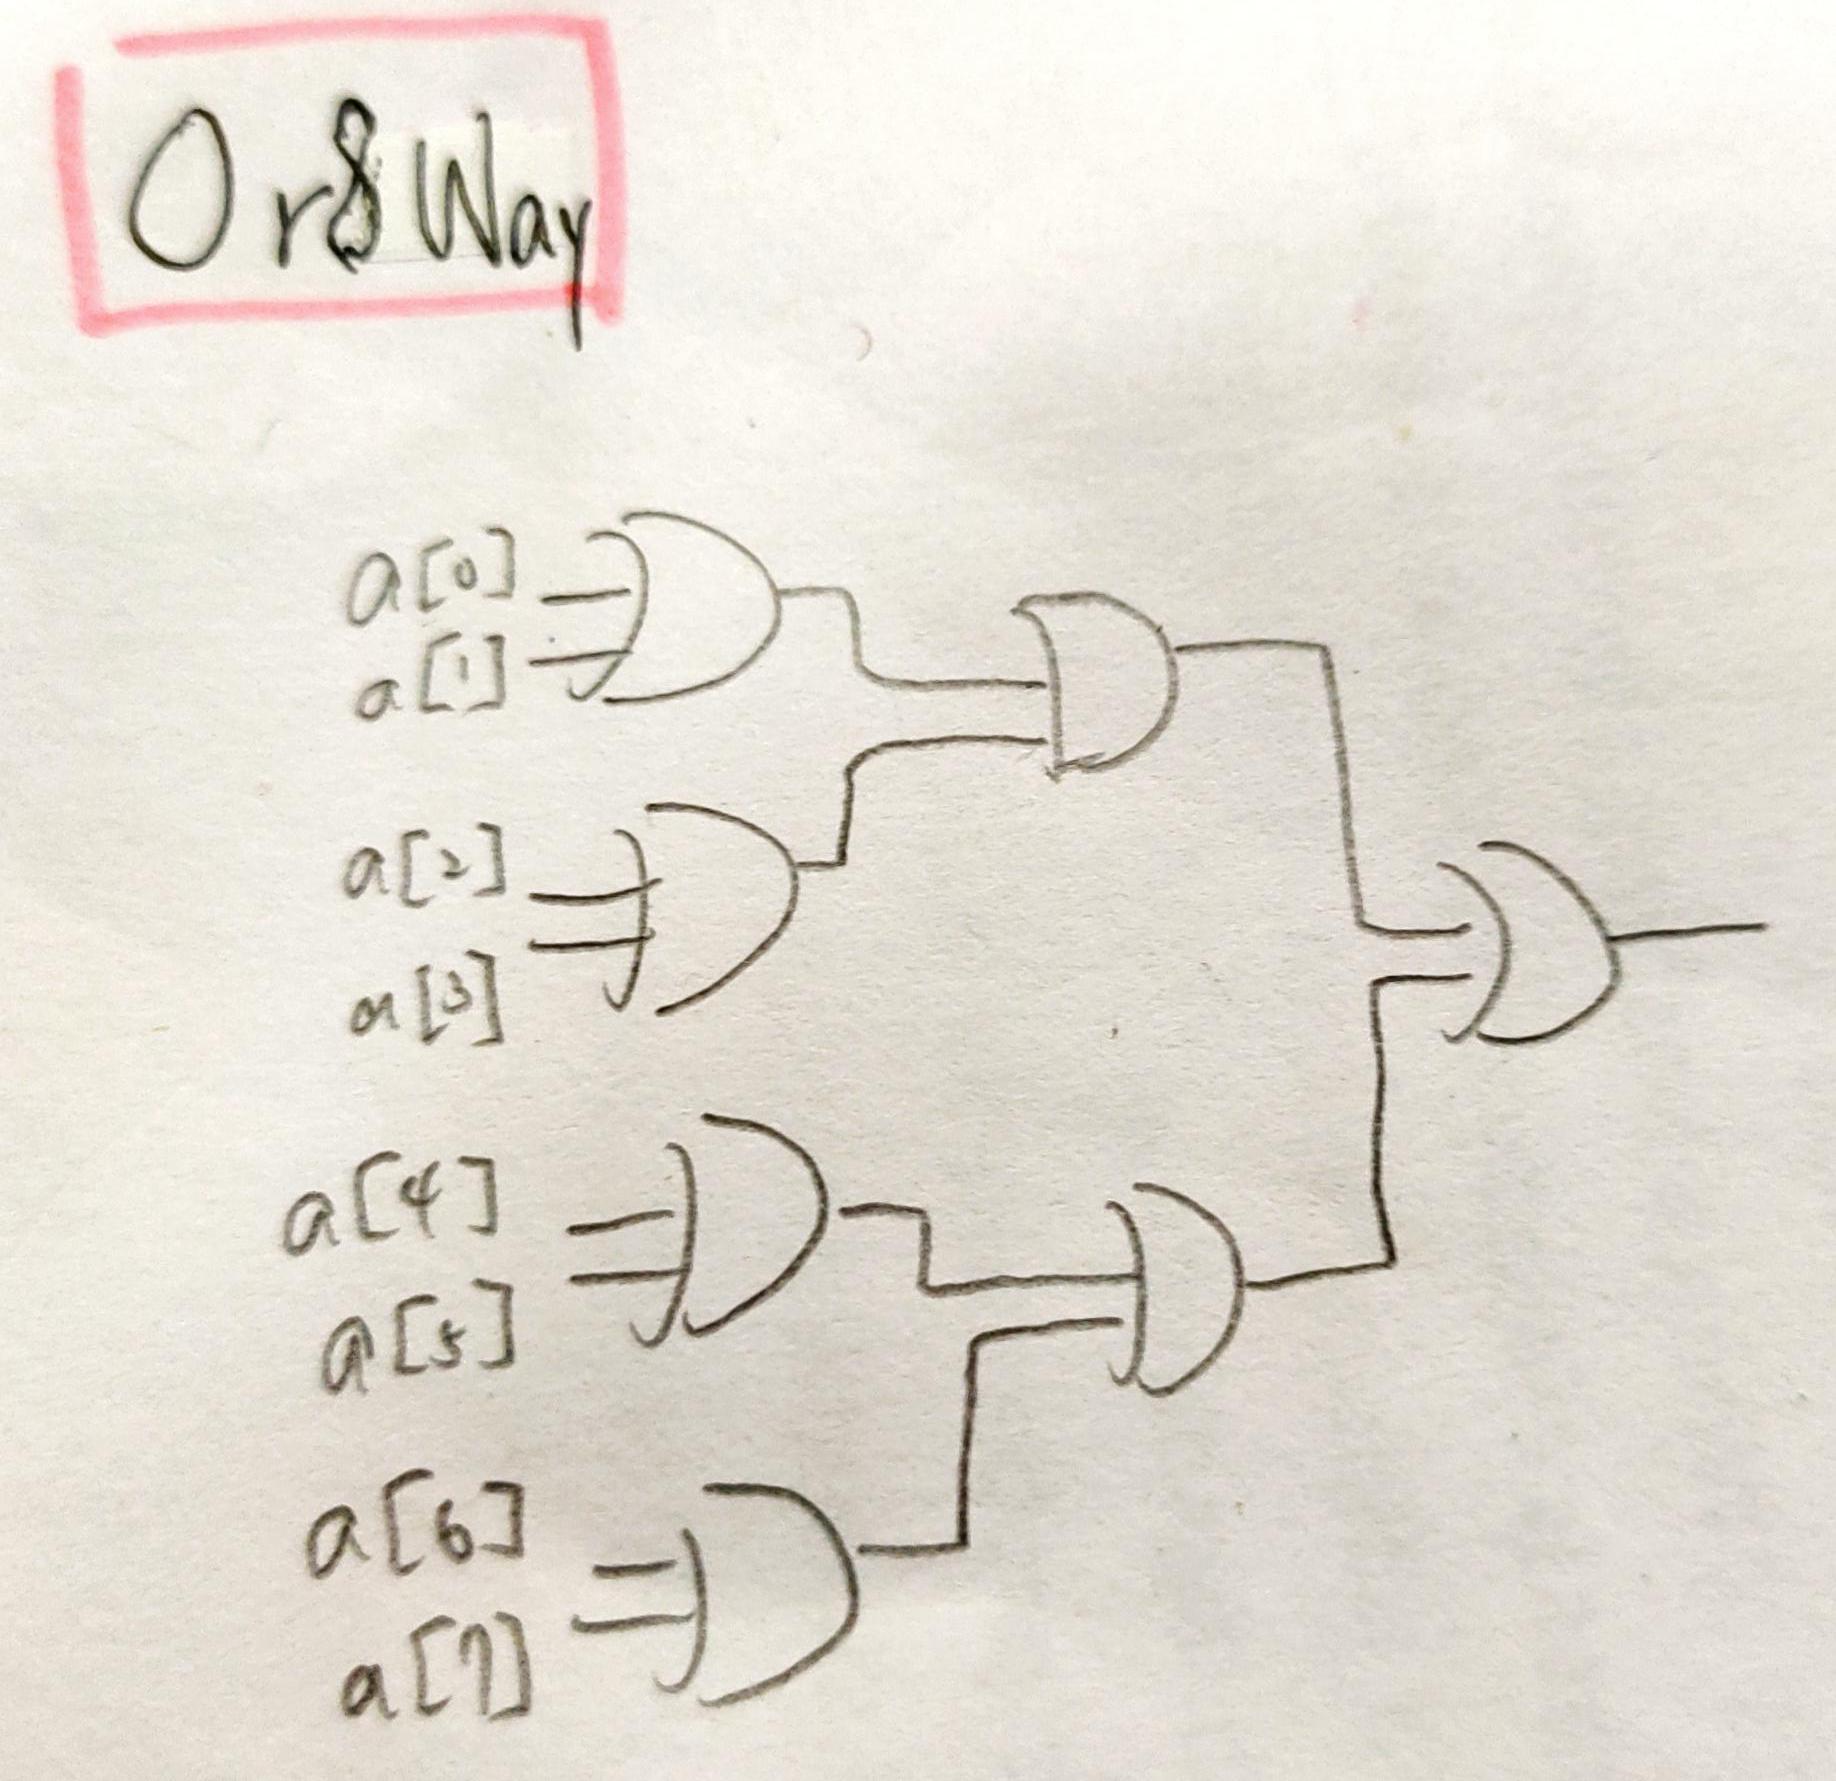 Or8Way
a[0]
a[1]
a[2]
a[3]
a[4]
a[5]
a[6]
a[7]